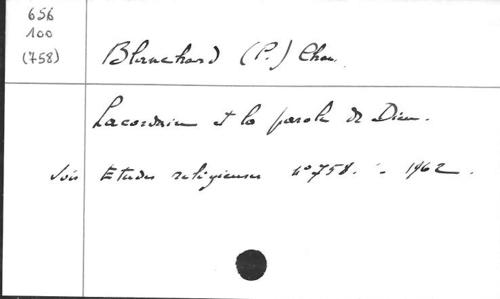 656
100
(758)
Blanchard (P.) Chan.
Lacordaire et la parole de Dieu.
Voir Etudes religieuses n° 758. - 1962.